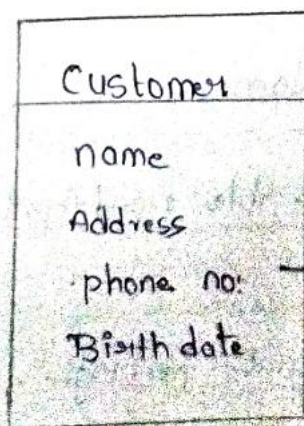 Customer
name
Address
phone no:
Birth date